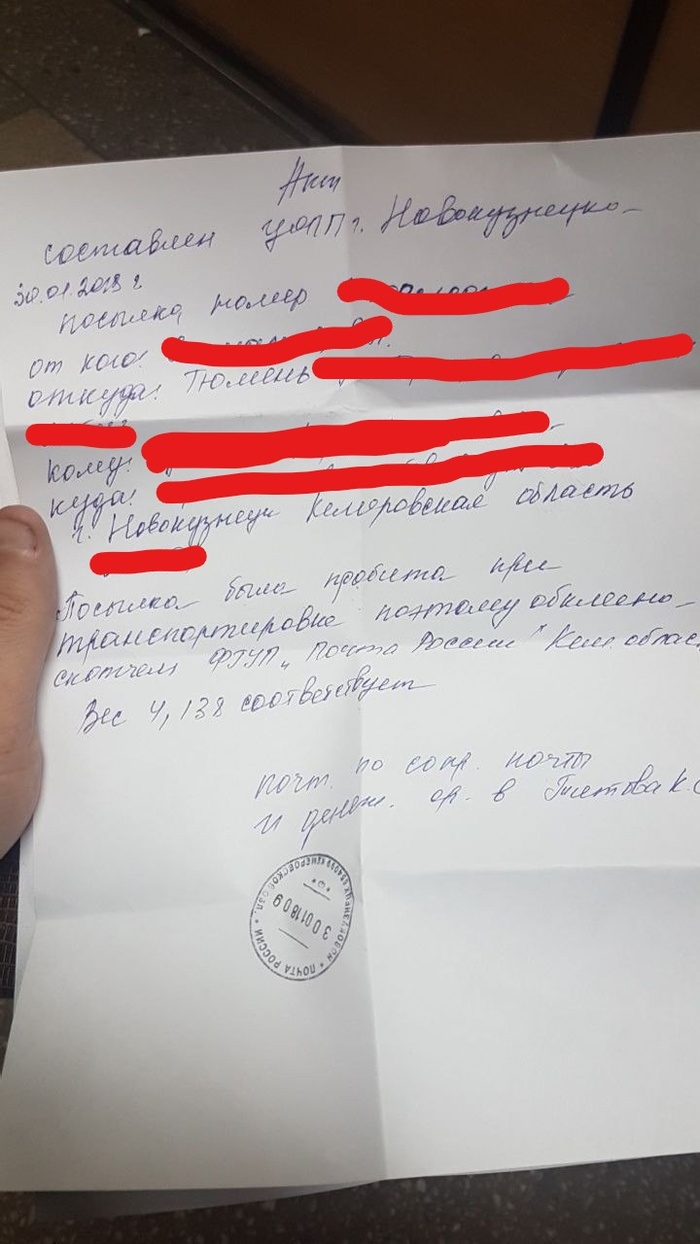 Акт
составлен УОПП г. Новокузнецка
30.01.2018 г.
посылка номер
от кого:
откуда: Тюмень
кому:
куда:
г. Новокузнецк Кемеровская область
Посылка была пробита при
транспортировке поэтому обклеено
скотчем ФГУП „Почта России" Кем. облас
Вес 4,138 соответствует
почт. по сопр. почты
и денеж. ср. в К.С
ПОЧТА РОССИИ * НОВОКУЗНЕЦК 654099 КЕМЕРОВСКОЕ ОБЛ. *
30011809